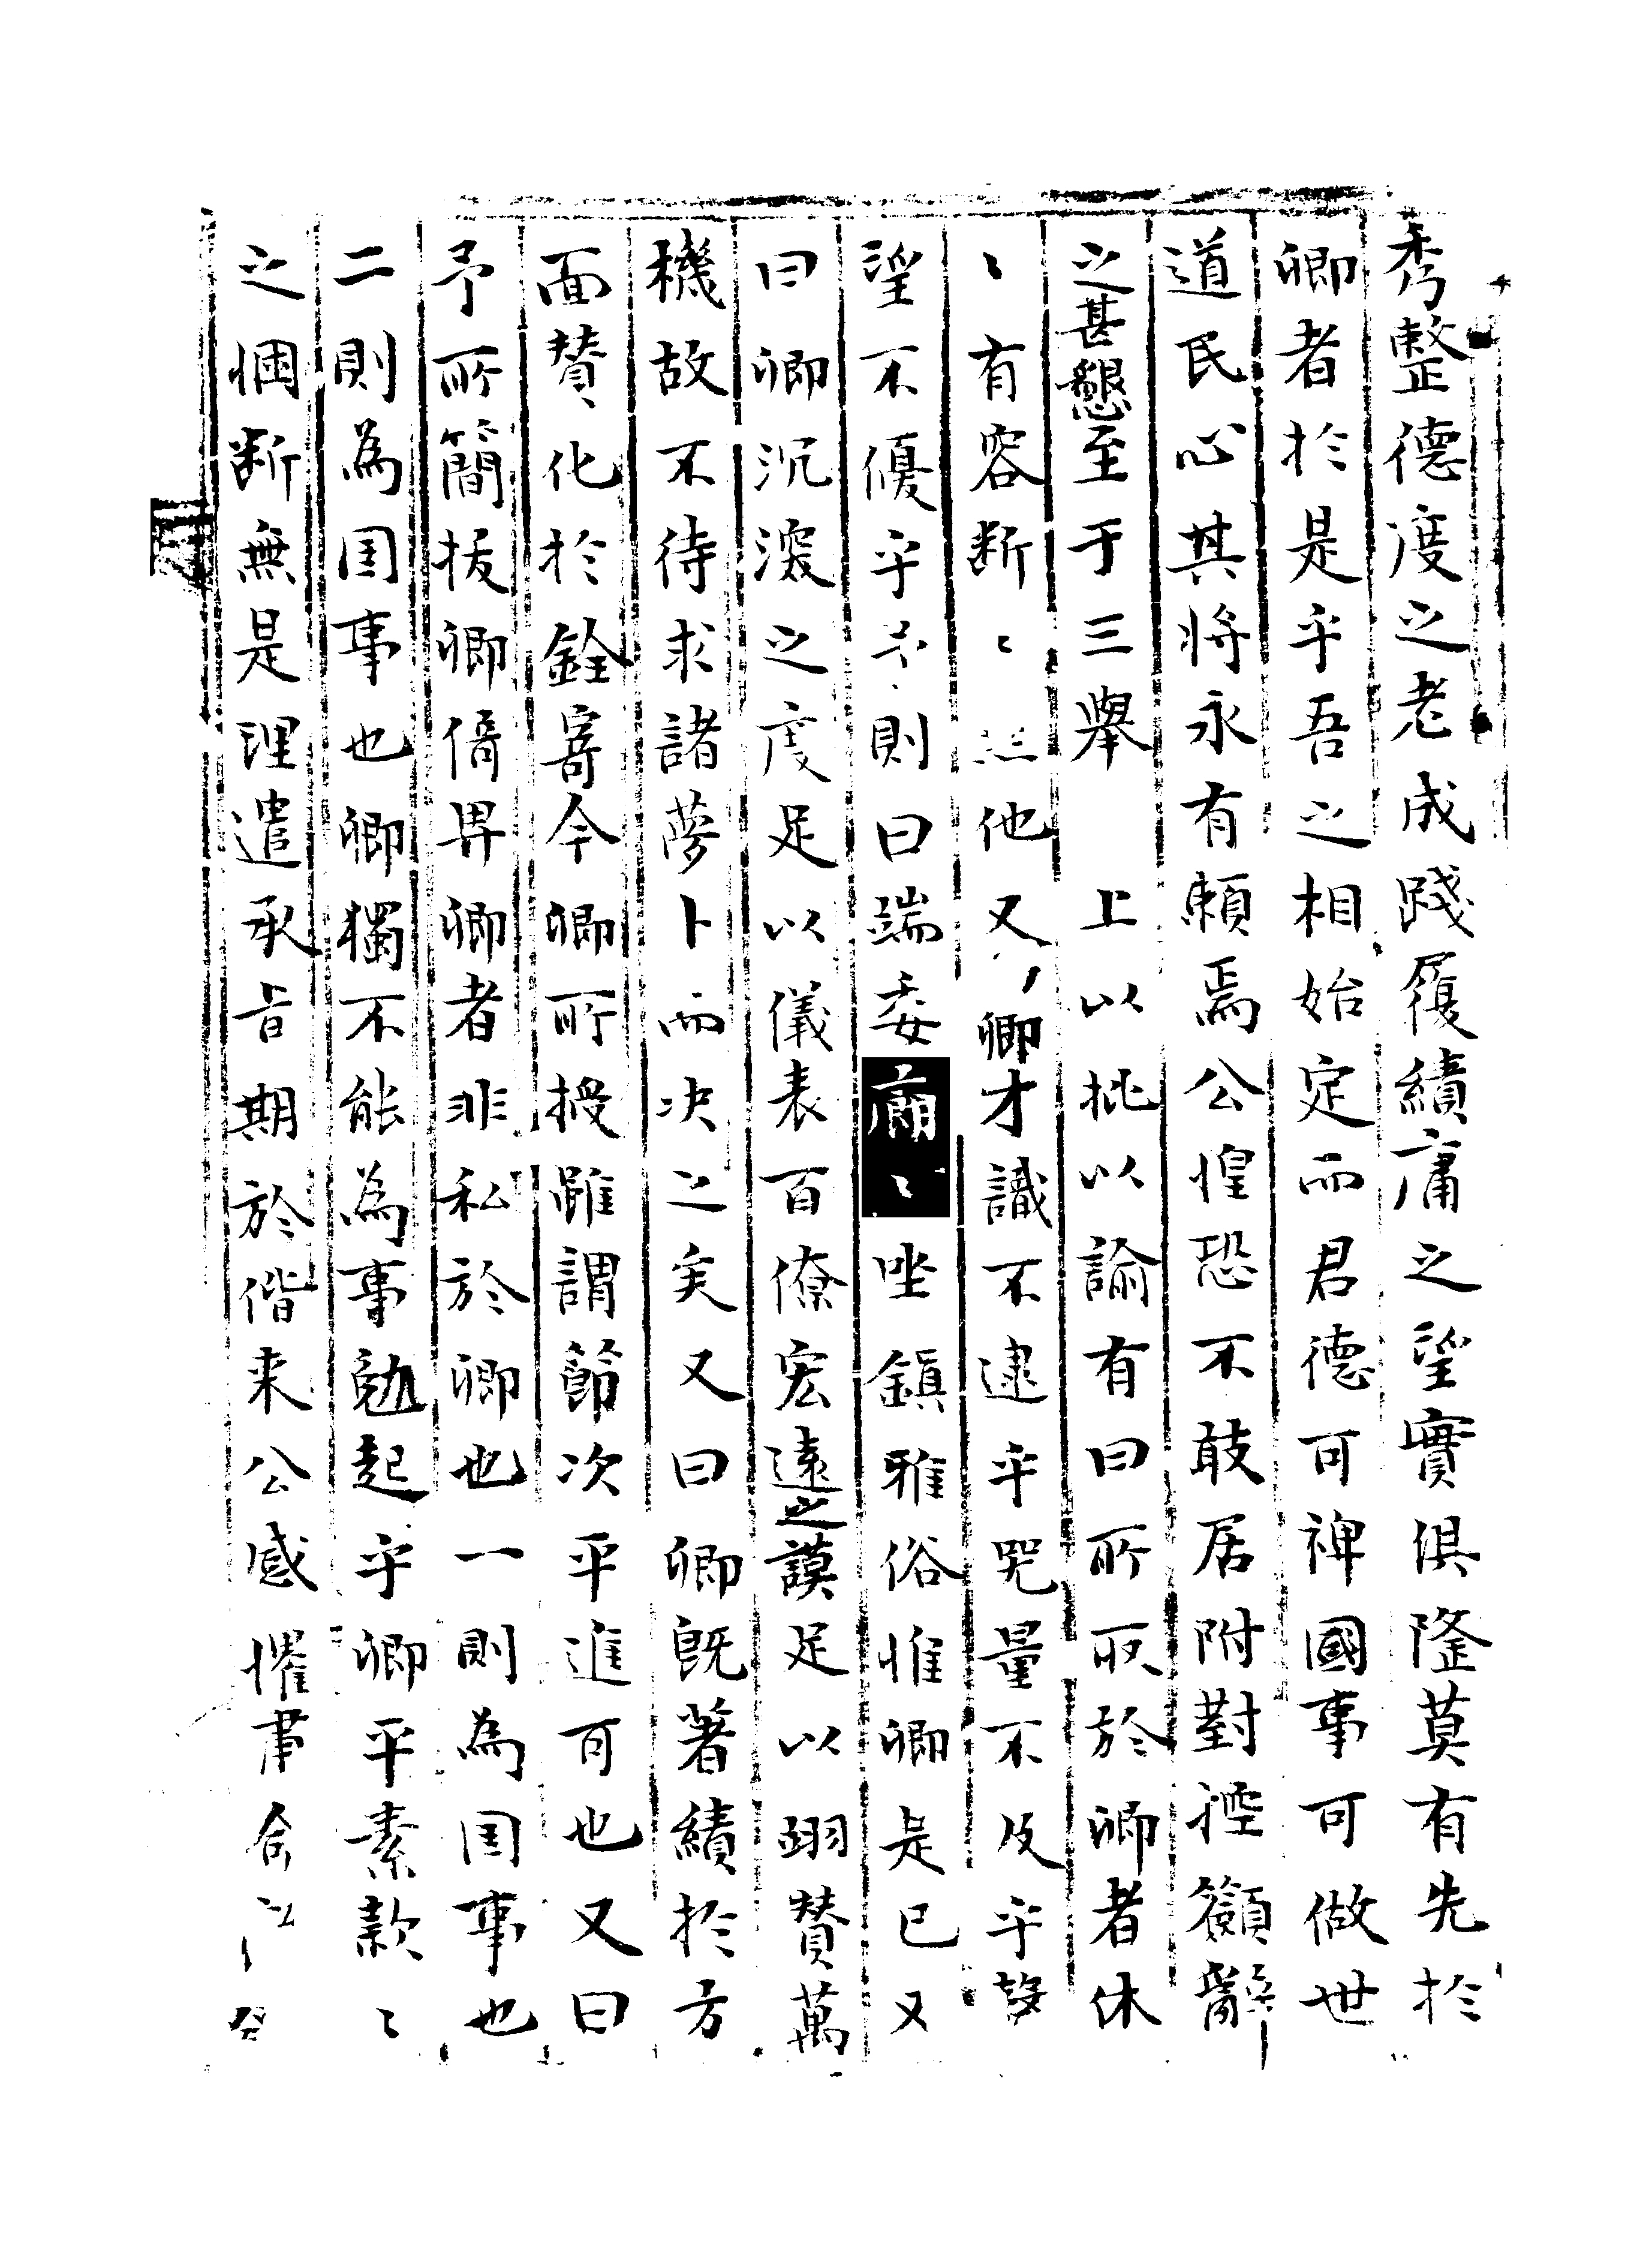 秀整德度之老成踐履績庸之望實俱隆莫有先於
卿者於是乎吾之相始定而君德可裨國事可做世
道民心其將永有賴焉公惶恐不敢居附對控籲辭
之甚懇至于三擧上以批以諭有曰所取於卿者休
〻有容斷〻他又卿才識不逮乎咒量不及乎故
望不優乎不則曰端委廟〻坐鎭雅俗惟卿是已又
曰卿沉深之度足以儀表百僚宏遠之謨足以翊贊萬
機故不待求諸夢卜而决之矣又曰卿旣著績於方
面贊化於銓寄今卿所授雖謂節次平進可也又曰
予所簡拔卿倚畀卿者非私於卿也一則為国事也
二則為国事也卿獨不能為事勉起乎卿平素款〻
之悃斷無是理遣承旨期於偕来公感懼肅命